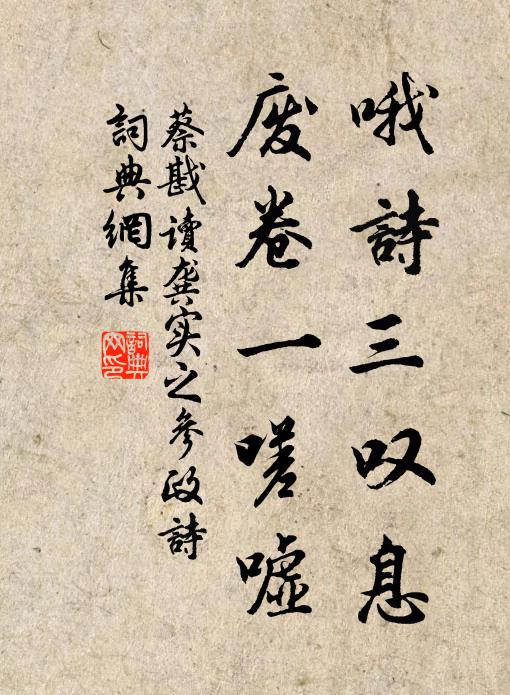 哦詩三叹息
废卷一嗟嘘
蔡戡读龚实之参政詩
词典網集
詞典網印